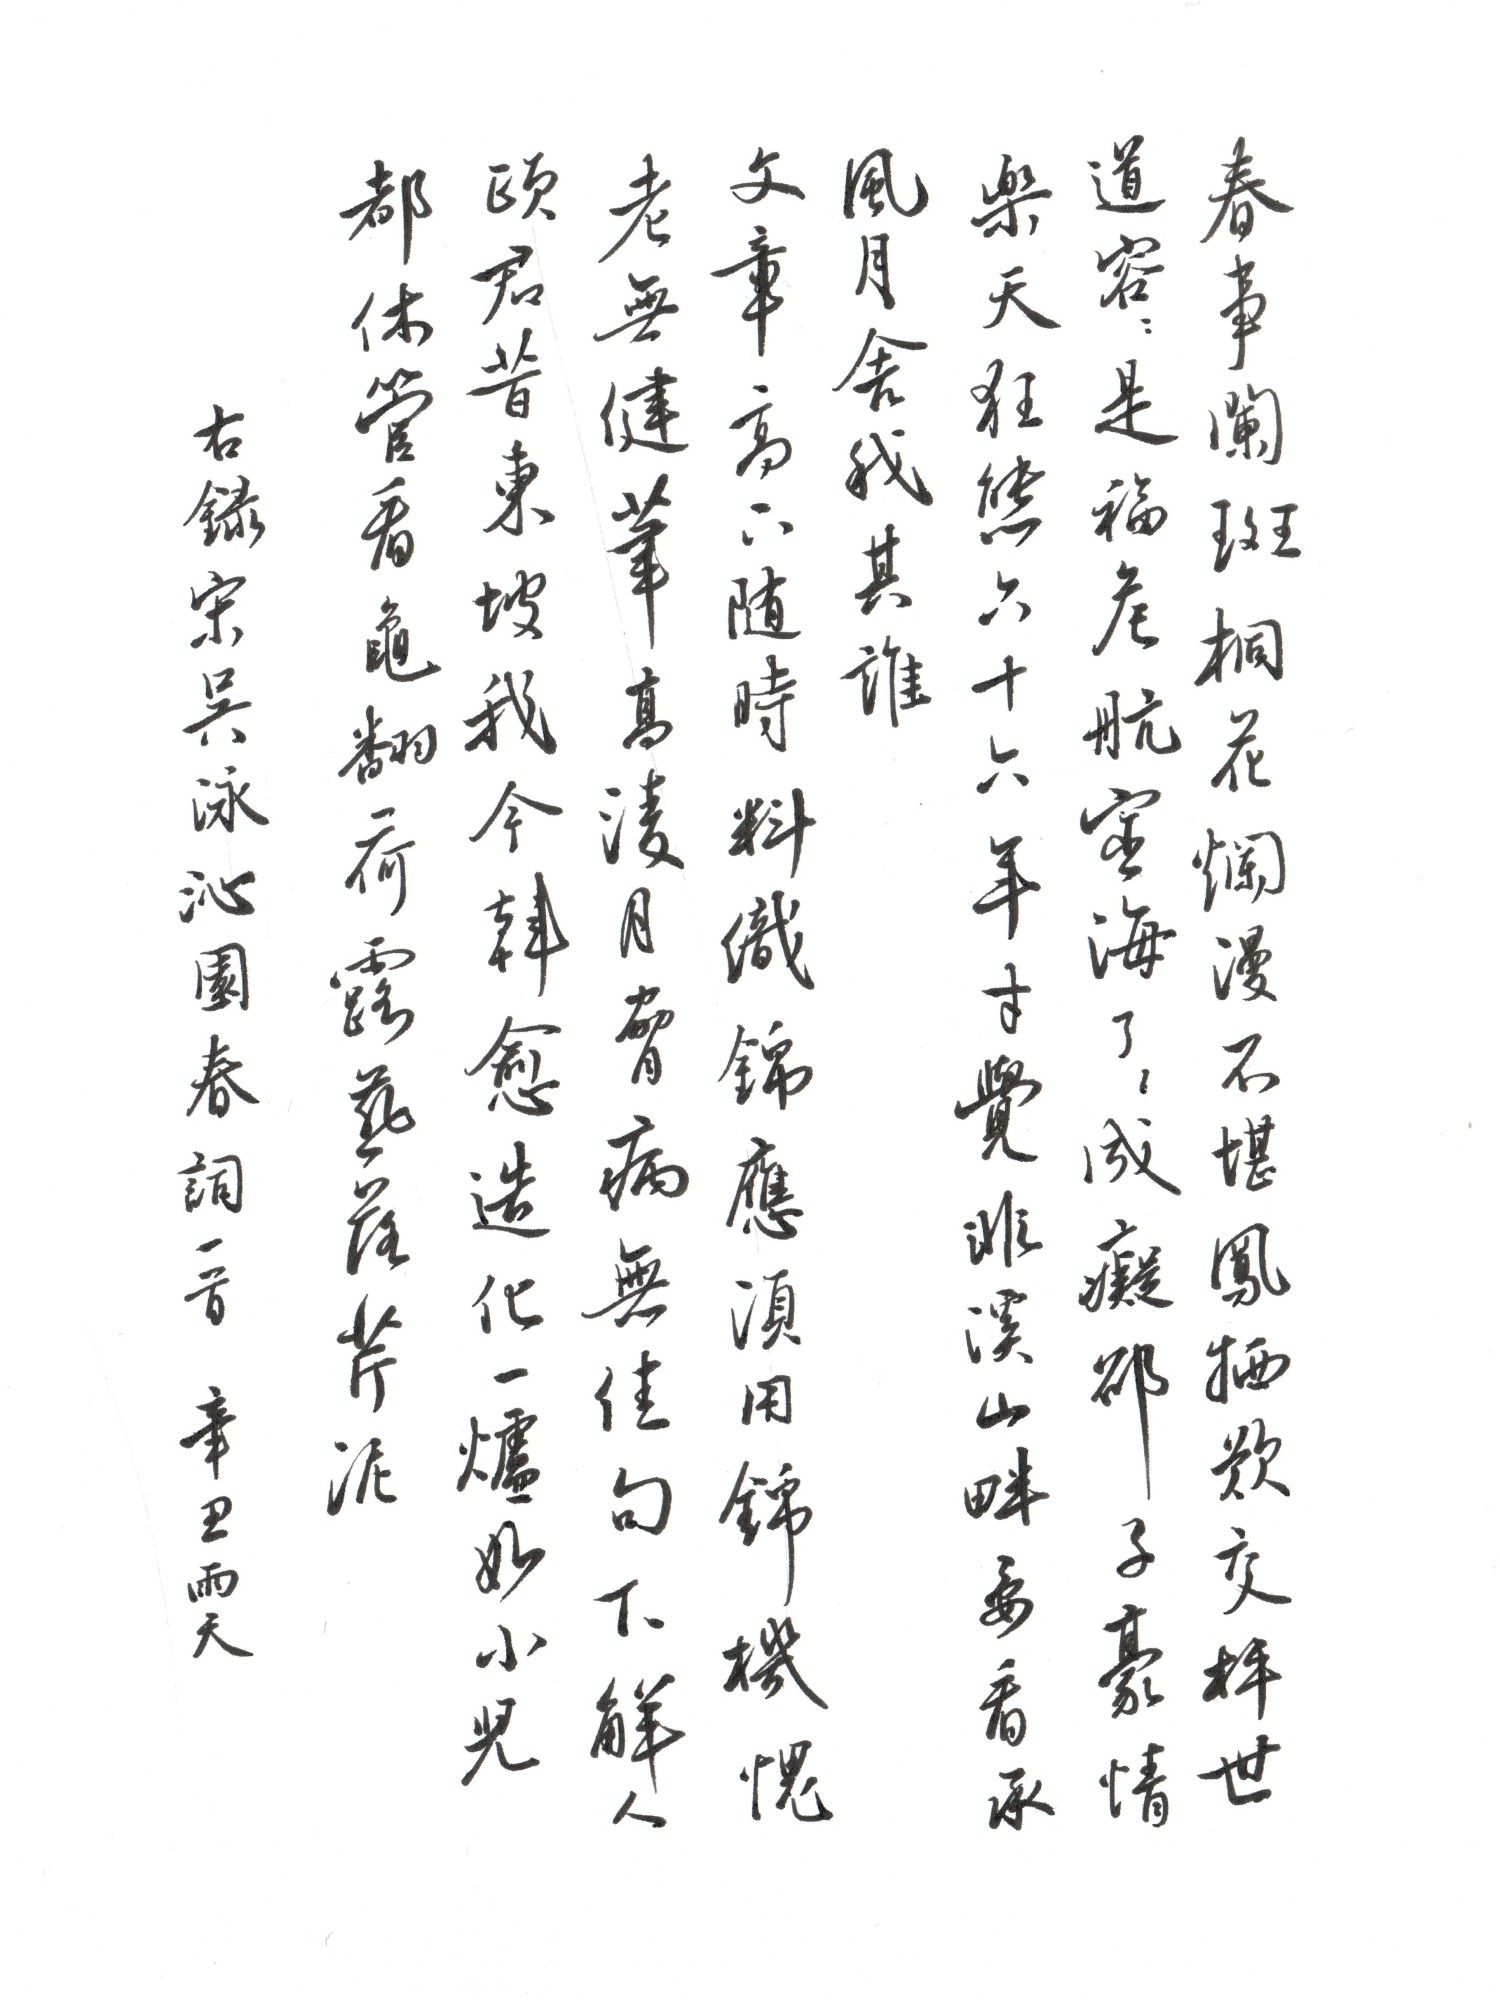 春事闌斑桐花爛漫不堪鳳栖歎交枰世
道容々是福危航宦海了々成癡邵子豪情
樂天狂態六十六年才覺非溪山畔要看承
風月舍我其誰
文章高下隨時料織錦應須用錦機愧
老無健筆高凌月脅病無佳句下解人
頤君昔東坡我今韓愈造化一爐如小兒
都休管看龜翻荷露燕落芹泥
右錄宋吳泳沁園春詞一首 辛丑雨天